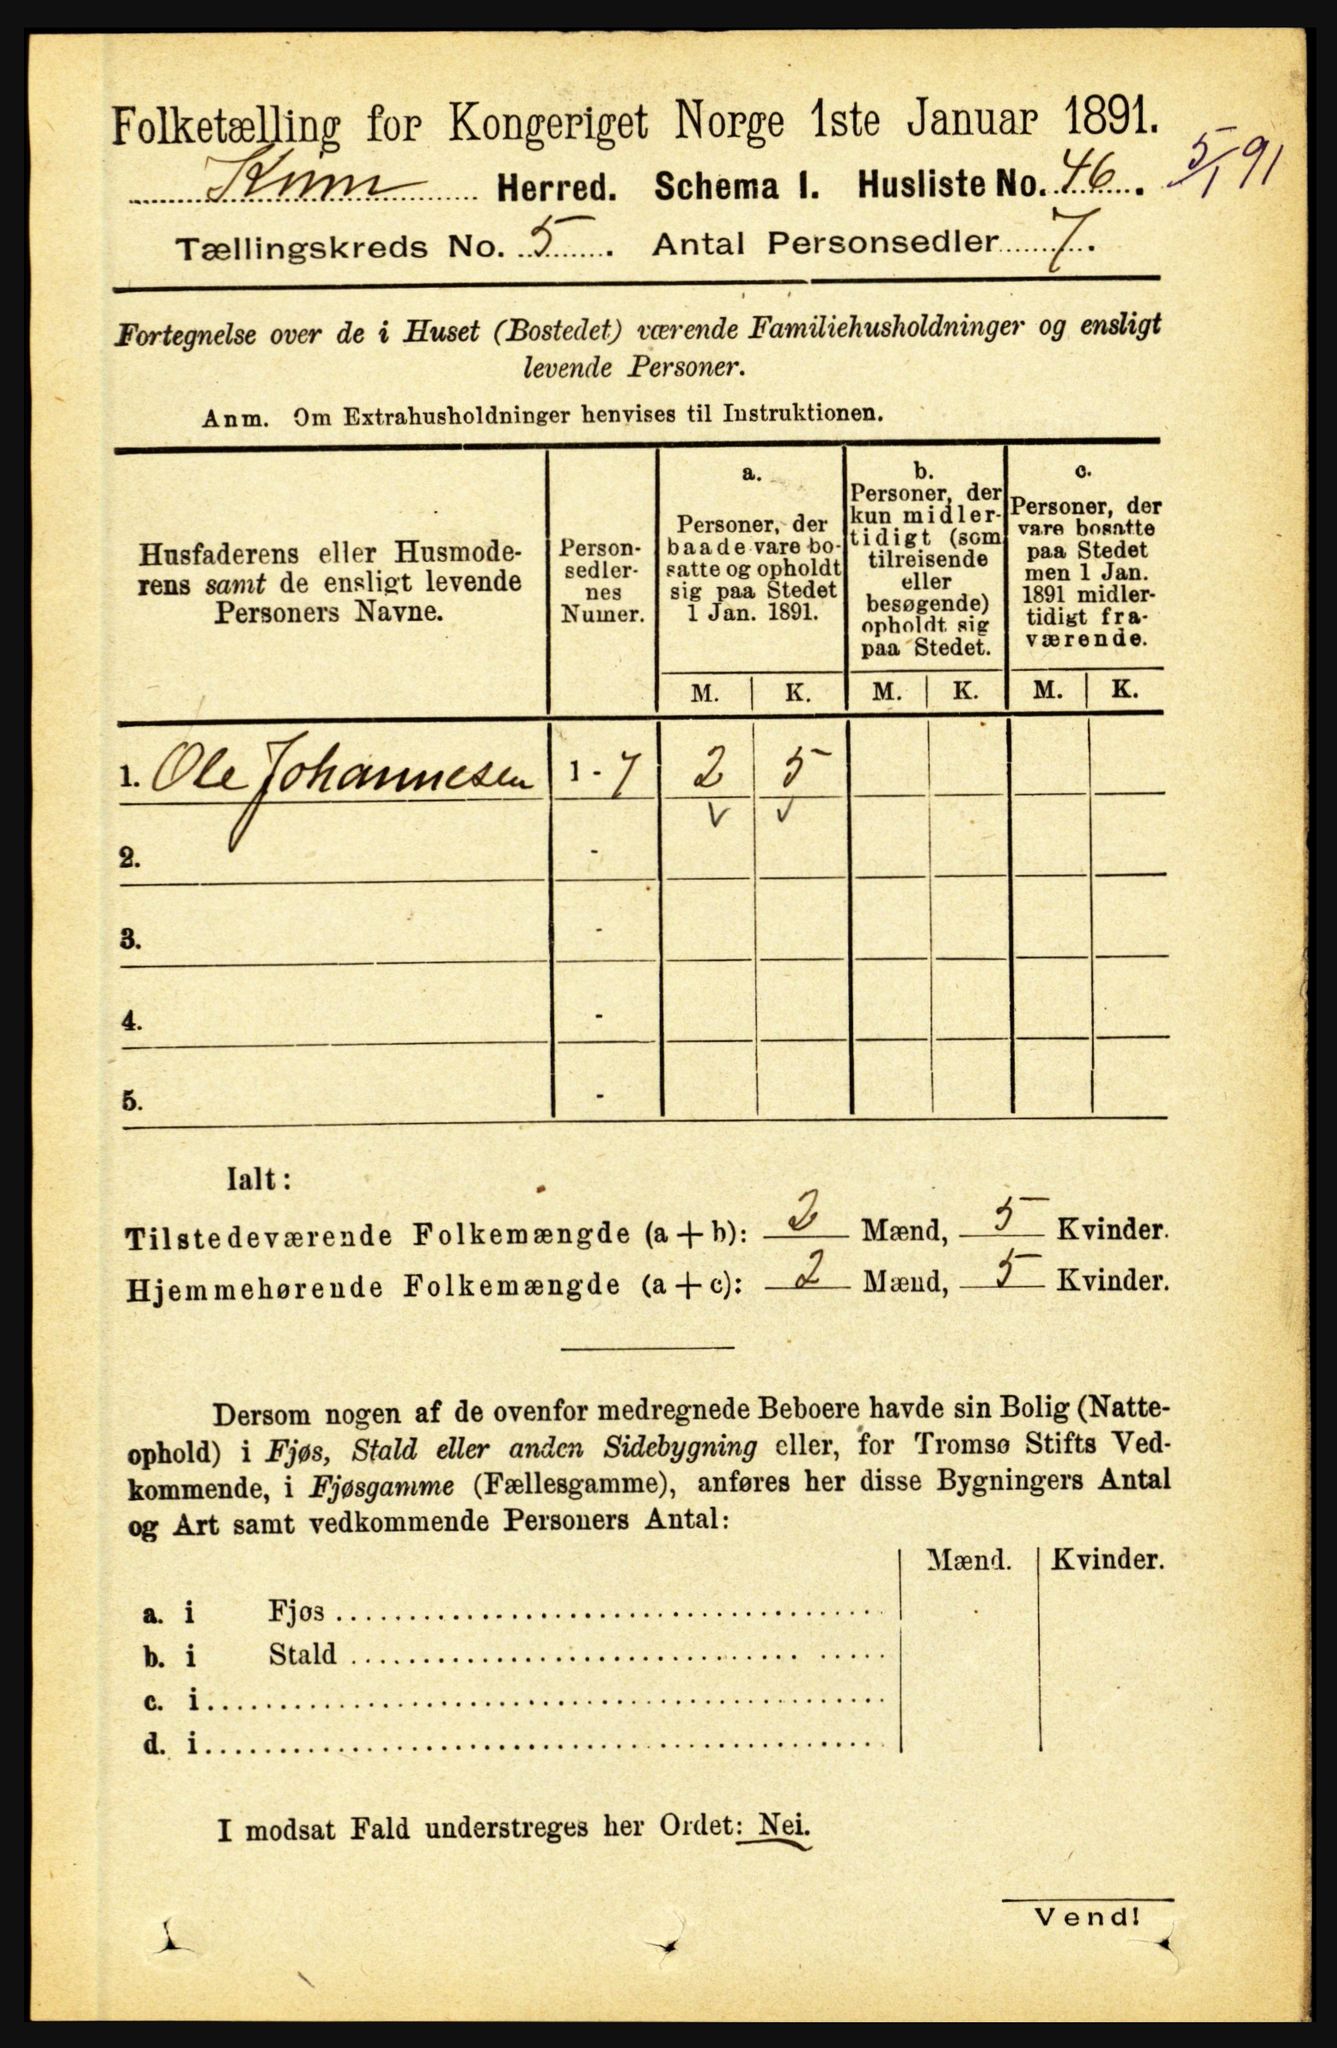 Folketælling for Kongeriget Norge 1ste Januar 1891.
Kinn Herred. Schema I. Husliste No. 46. 5/1 91
Tællingskreds No. 5. Antal Personsedler 7.
Fortegnelse over de i Huset (Bostedet) værende Familiehusholdninger og ensligt
levende Personer.
Anm. Om Extrahusholdninger henvises til Instruktionen.
Husfaderens eller Husmode-
rens samt de ensligt levende
Personers Navne.
Person-
sedler-
nes
Numer.
a.
Personer, der
baade vare bo-
satte og opholdt
sig paa Stedet
1 Jan. 1891.
b.
Personer, der
kun midler-
tidigt (som
tilreisende
eller
besøgende)
opholdt sig
paa Stedet.
c.
Personer, der
vare bosatte
paa Stedet
men 1 Jan.
1891 midler-
tidigt fra-
værende.
M. K. M. K. M. K.
1. Ole Johannesen 1 - 7 2 5
2. -
3. -
4. -
5. -
Ialt:
Tilstedeværende Folkemængde (a + b): 2 Mænd, 5 Kvinder.
Hjemmehørende Folkemængde (a + c): 2 Mænd, 5 Kvinder.
Dersom nogen af de ovenfor medregnede Beboere havde sin Bolig (Natte-
ophold) i Fjøs, Stald eller anden Sidebygning eller, for Tromsø Stifts Ved-
kommende, i Fjøsgamme (Fællesgamme), anføres her disse Bygningers Antal
og Art samt vedkommende Personers Antal:
Mænd. Kvinder.
a. i Fjøs
b. i Stald
c. i
d. i
I modsat Fald understreges her Ordet: Nei.
Vend!